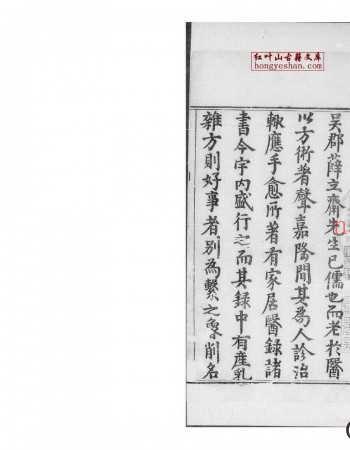 红叶山古籍文库
hongyeshan.com
吳郡薛立齋先生已儒也而老於醫
以方術著聲嘉隆間其為人診治
輙應手愈所著有家居醫錄諸
書今宇內盛行之而其錄中有產乳
雜方則好事者別為繫之彙削名